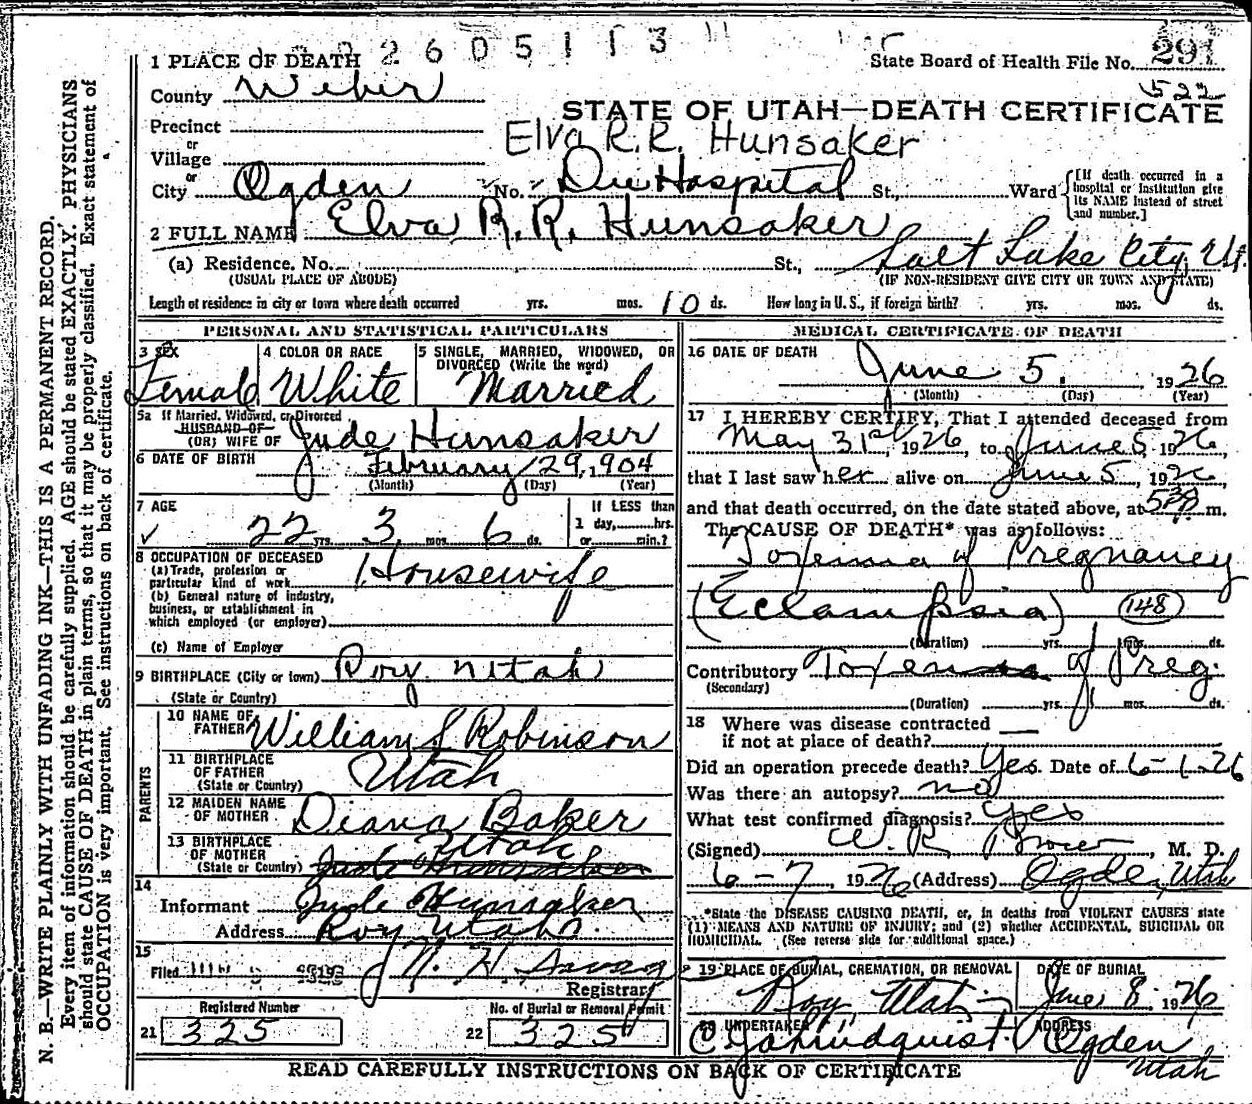 2605113
1 PLACE OF DEATH
State Board of Health File No. 291
522
County Weber
STATE OF UTAH—DEATH CERTIFICATE
Precinct
or
Village
Elva R.R. Hunsaker
or
City Ogden No. Dee Hospital St., Ward
[If death occurred in a hospital or institution give its NAME instead of street and number.]
2 FULL NAME Elva R. R. Hunsaker
(a) Residence. No. St., Salt Lake City, Ut.
(USUAL PLACE OF ABODE) (IF NON-RESIDENT GIVE CITY OR TOWN AND STATE)
Length of residence in city or town where death occurred yrs. mos. 10 ds. How long in U. S., if foreign birth? yrs. mos. ds.
PERSONAL AND STATISTICAL PARTICULARS
3 SEX
Female
4 COLOR OR RACE
White
5 SINGLE, MARRIED, WIDOWED, OR DIVORCED (Write the word)
Married
5a If Married, Widowed, or Divorced
HUSBAND OF
(OR) WIFE OF Jude Hunsaker
6 DATE OF BIRTH February 29, 1904
(Month) (Day) (Year)
7 AGE
22 yrs. 3 mos. 6 ds.
If LESS than
1 day, hrs.
or min.?
8 OCCUPATION OF DECEASED
(a) Trade, profession or
particular kind of work Housewife
(b) General nature of industry,
business, or establishment in
which employed (or employer)
(c) Name of Employer
9 BIRTHPLACE (City or town) Roy Utah
(State or Country)
PARENTS
10 NAME OF
FATHER William S Robinson
11 BIRTHPLACE
OF FATHER Utah
(State or Country)
12 MAIDEN NAME
OF MOTHER Diana Baker
13 BIRTHPLACE
OF MOTHER Utah
(State or Country) Jude Hunsaker
14
Informant Jude Hunsaker
Address Roy Utah
15
Filed
Registrar
Registered Number
21 325
No. of Burial or Removal Permit
22 325
MEDICAL CERTIFICATE OF DEATH
16 DATE OF DEATH
June 5, 1926
(Month) (Day) (Year)
17 I HEREBY CERTIFY, That I attended deceased from
May 31st, 1926, to June 5, 1926,
that I last saw her alive on June 5, 1926,
and that death occurred, on the date stated above, at m.
The CAUSE OF DEATH* was as follows:
Toxemia of Pregnancy
(Eclampsia) 148
(Duration) yrs. mos. ds.
Contributory Toxemia of Preg.
(Secondary)
(Duration) yrs. mos. ds.
18 Where was disease contracted
if not at place of death?
Did an operation precede death? Yes. Date of 6-1-26
Was there an autopsy? no
What test confirmed diagnosis? yes
(Signed) W. R. , M. D.
6-7, 1926 (Address) Ogden, Utah
*State the DISEASE CAUSING DEATH, or, in deaths from VIOLENT CAUSES state
(1) MEANS AND NATURE OF INJURY; and (2) whether ACCIDENTAL, SUICIDAL OR
HOMICIDAL. (See reverse side for additional space.)
19 PLACE OF BURIAL, CREMATION, OR REMOVAL
Roy, Utah
DATE OF BURIAL
June 8 1926
20 UNDERTAKER
Lindquist
ADDRESS
Ogden
Utah
READ CAREFULLY INSTRUCTIONS ON BACK OF CERTIFICATE
N. B.—WRITE PLAINLY WITH UNFADING INK—THIS IS A PERMANENT RECORD.
Every item of information should be carefully supplied. AGE should be stated EXACTLY. PHYSICIANS
should state CAUSE OF DEATH in plain terms, so that it may be properly classified. Exact statement of
OCCUPATION is very important. See instructions on back of certificate.